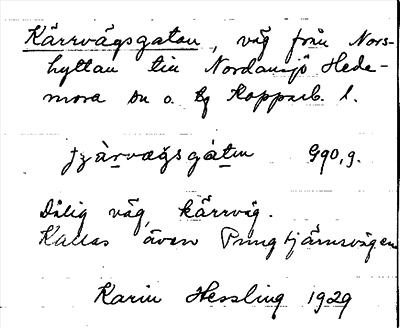 Kärrvägsgatan, väg från Nors-
hyttan till Nordansjö Hede-
mora sn o. tg Kopparb. l.
Dålig väg, kärrväg.
Kallas även Pungtjärnsvägen
Karin Hessling 1929